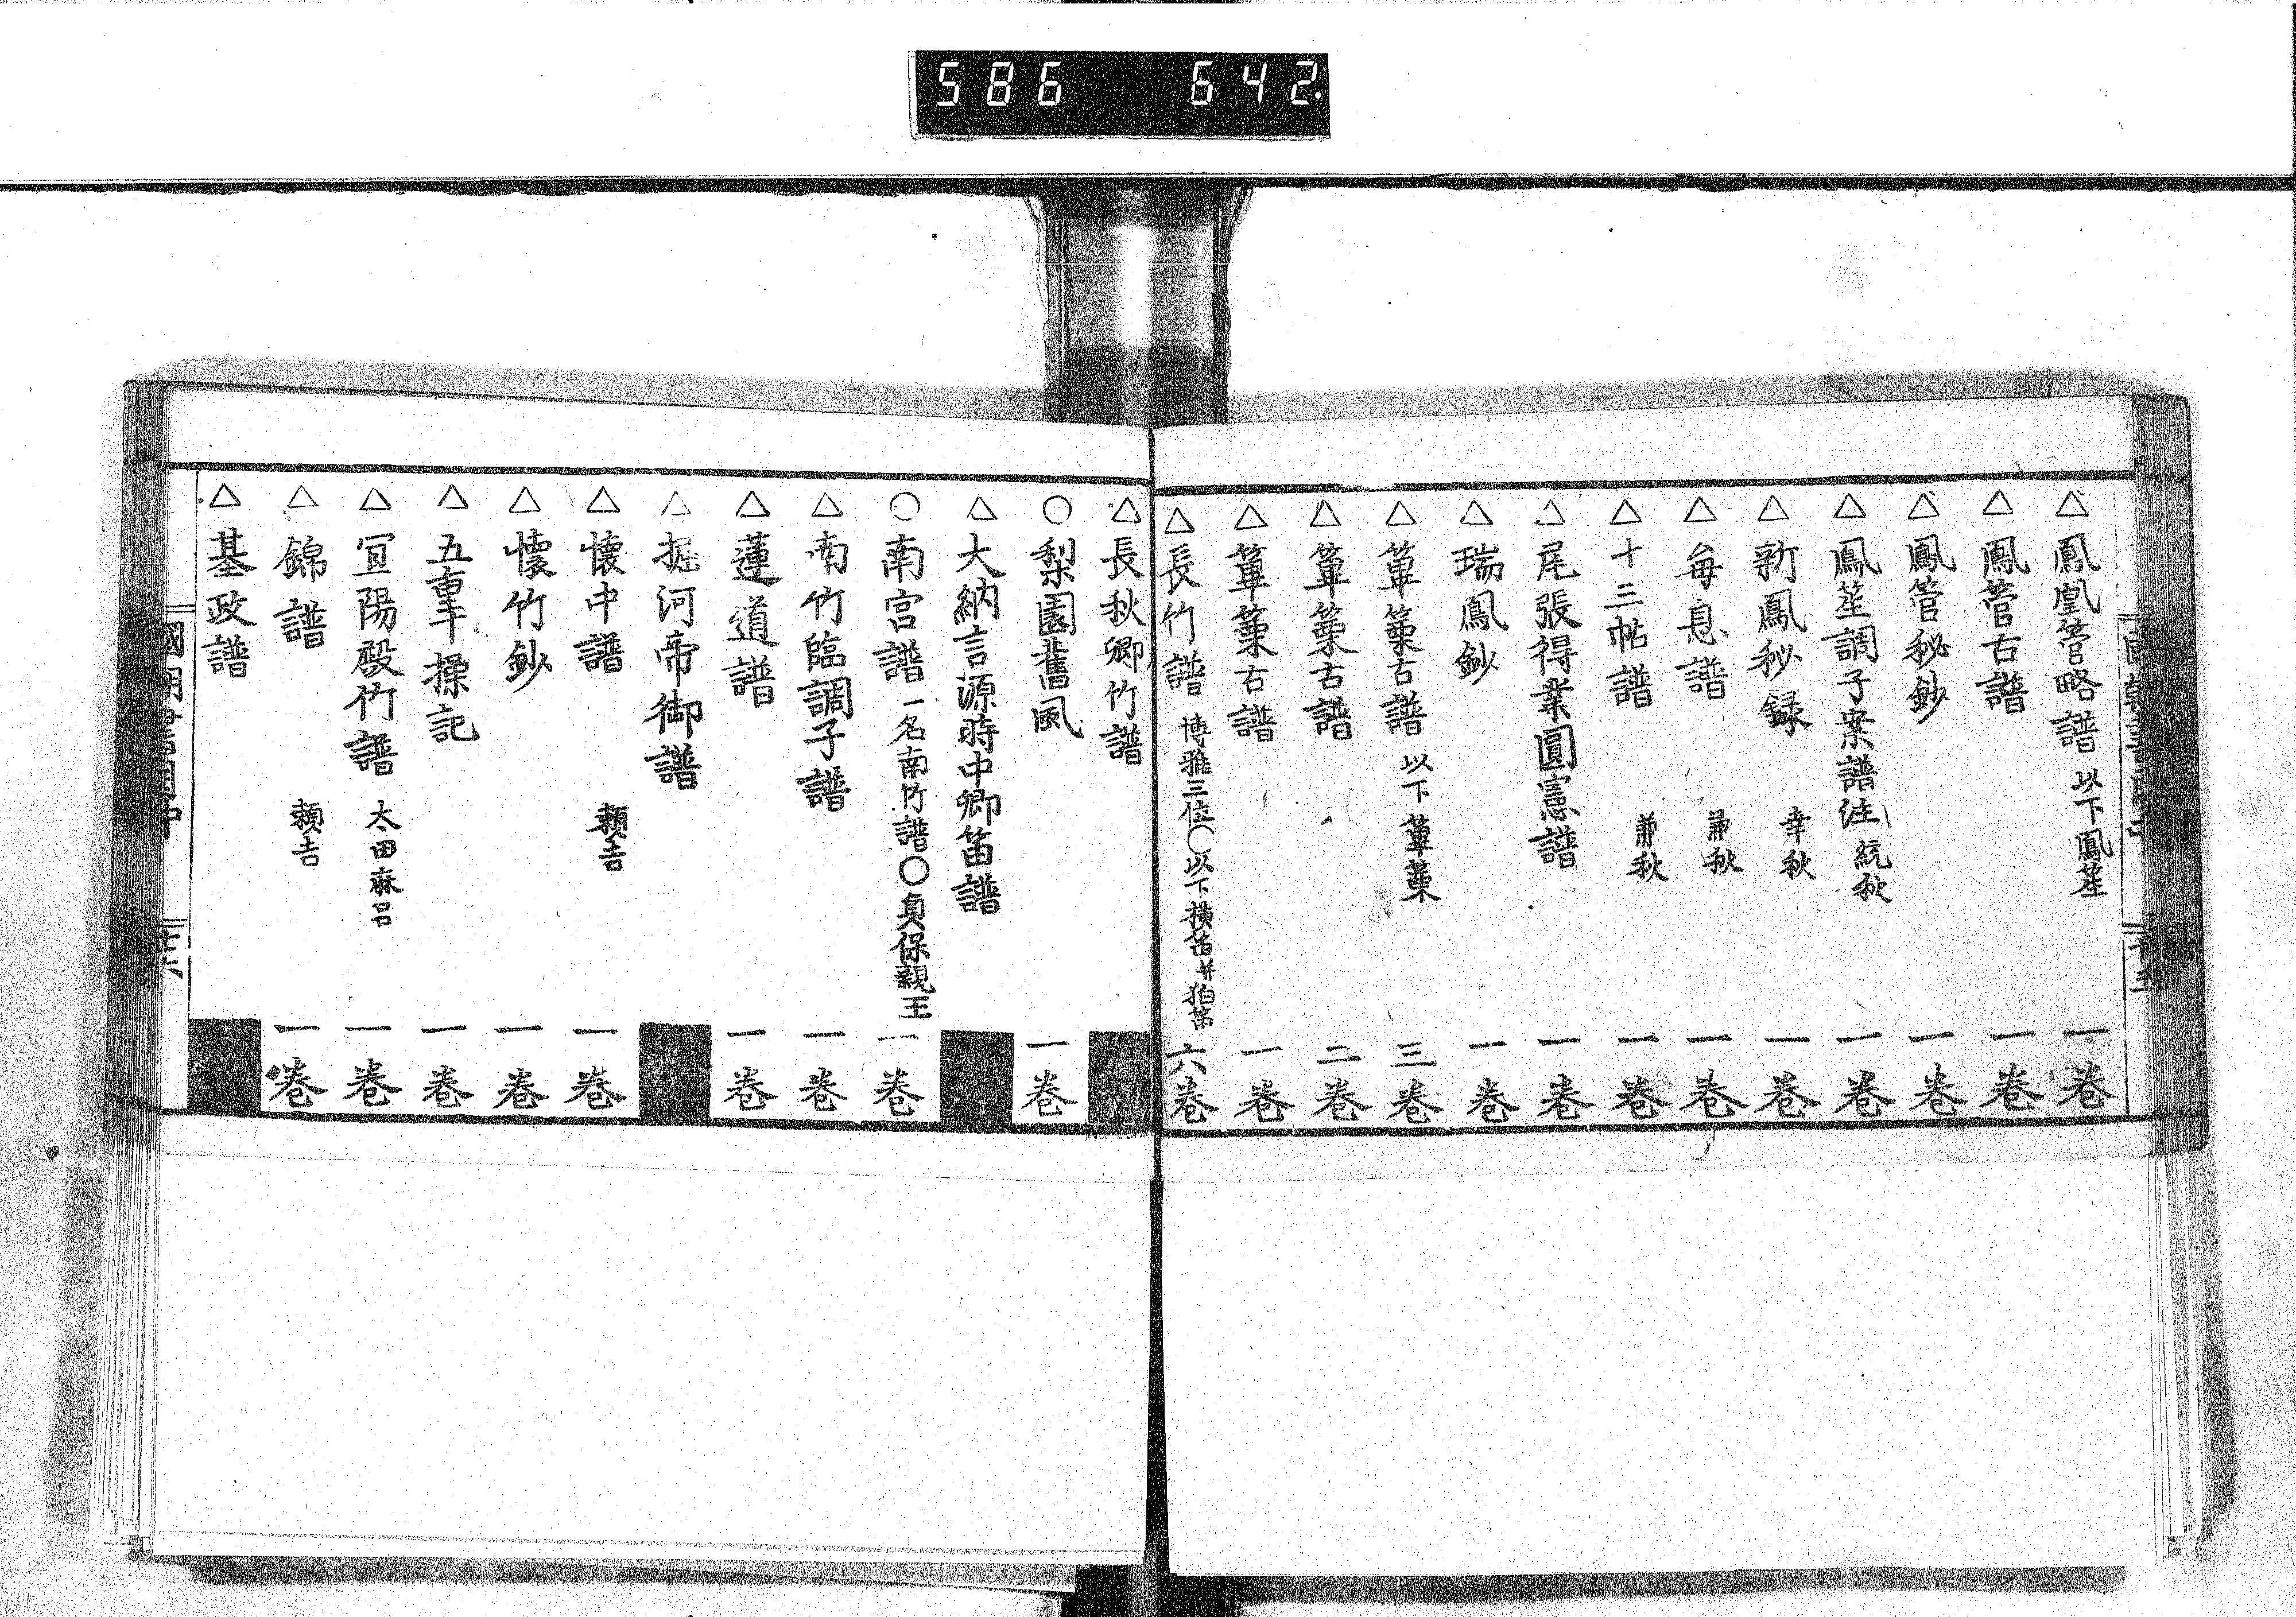 586 642.
△鳳凰管略譜 以下鳳笙 一卷
△鳳管古譜 一卷
△鳳管秘鈔 一卷
△鳳笙調子案譜注 統秋 一卷
△新鳳秘録 幸秋 一卷
△每息譜 兼秋 一卷
△十三帖譜 兼秋 一卷
△尾張得業圓憲譜 一卷
△瑞鳳鈔 一卷
△篳篥古譜 以下篳篥 三卷
△篳篥古譜 二卷
△篳篥古譜 一卷
△長竹譜 博雅三位○以下横笛并狛笛 六卷
△長秋卿竹譜
○梨園舊風 一卷
△大納言源時中卿笛譜
○南宮譜 一名南竹譜○貞保親王 一卷
△南竹臨調子譜 一卷
△蓮道譜 一卷
△掘河帝御譜
△懷中譜 賴吉 一卷
△懷竹鈔 一卷
△五重十操記 一卷
△宜陽殿竹譜 太田麻呂 一卷
△錦譜 賴吉 一卷
△基政譜